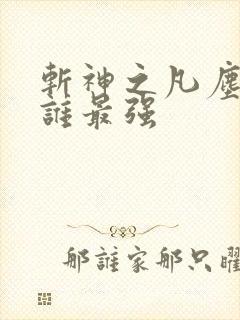 斬神之凡塵
誰最强
那誰家那只曜